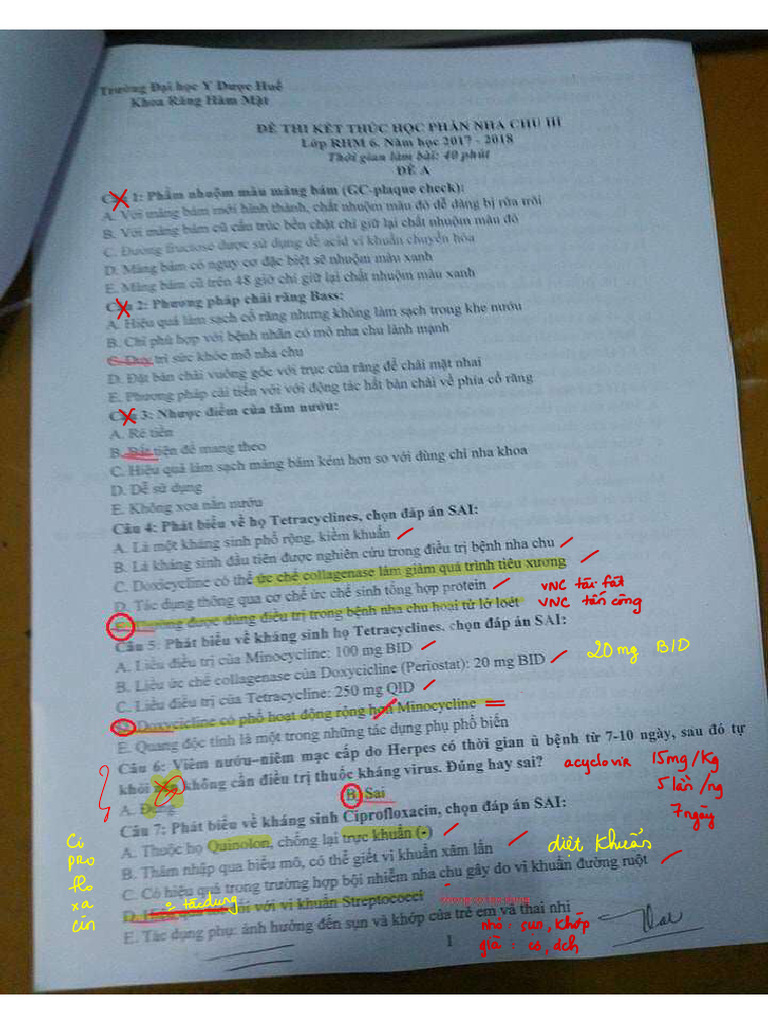 Trường Đại học Y Dược Huế
Khoa Răng Hàm Mặt
ĐỀ THI KẾT THÚC HỌC PHẦN NHA CHU III
Lớp RHM 6. Năm học 2017 - 2018
Thời gian làm bài: 40 phút
ĐỀ A
Câu 1: Phẩm nhuộm màu mảng bám (GC-plaque check):
A. Với mảng bám mới hình thành, chất nhuộm màu đỏ dễ dàng bị rửa trôi
B. Với mảng bám cũ cấu trúc bền chặt chỉ giữ lại chất nhuộm màu đỏ
C. Đường fructose được sử dụng để acid vi khuẩn chuyển hóa
D. Mảng bám có nguy cơ đặc biệt sẽ nhuộm màu xanh
E. Mảng bám cũ trên 48 giờ chỉ giữ lại chất nhuộm màu xanh
Câu 2: Phương pháp chải răng Bass:
A. Hiệu quả làm sạch cổ răng nhưng không làm sạch trong khe nướu
B. Chỉ phù hợp với bệnh nhân có mô nha chu lành mạnh
C. Duy trì sức khỏe mô nha chu
D. Đặt bàn chải vuông góc với trục của răng để chải mặt nhai
E. Phương pháp cải tiến với với động tác hất bàn chải về phía cổ răng
Câu 3: Nhược điểm của tăm nướu:
A. Rẻ tiền
B. Bất tiện để mang theo
C. Hiệu quả làm sạch mảng bám kém hơn so với dùng chỉ nha khoa
D. Dễ sử dụng
E. Không xoa nắn nướu
Câu 4: Phát biểu về họ Tetracyclines, chọn đáp án SAI:
A. Là một kháng sinh phổ rộng, kiềm khuẩn
B. Là kháng sinh đầu tiên được nghiên cứu trong điều trị bệnh nha chu
C. Doxicycline có thể ức chế collagenase làm giảm quá trình tiêu xương
D. Tác dụng thông qua cơ chế ức chế sinh tổng hợp protein
VNC tái fát
E. Thường được dùng điều trị trong bệnh nha chu hoại tử lở loét
VNC tấn công
Câu 5: Phát biểu về kháng sinh họ Tetracyclines, chọn đáp án SAI:
A. Liều điều trị của Minocycline: 100 mg BID
B. Liều ức chế collagenase của Doxycicline (Periostat): 20 mg BID
20 mg BID
C. Liều điều trị của Tetracycline: 250 mg QID
D. Doxycicline có phổ hoạt động rộng hơn Minocycline
=
E. Quang độc tính là một trong những tác dụng phụ phổ biến
Câu 6: Viêm nướu-niêm mạc cấp do Herpes có thời gian ủ bệnh từ 7-10 ngày, sau đó tự
khỏi nên không cần điều trị thuốc kháng virus. Đúng hay sai?
acyclovir 15mg/Kg
5 lần/ng
7 ngày
A. Đúng
B. Sai
Câu 7: Phát biểu về kháng sinh Ciprofloxacin, chọn đáp án SAI:
A. Thuộc họ Quinolon, chống lại trực khuẩn (-)
B. Thâm nhập qua biểu mô, có thể giết vi khuẩn xâm lấn
diệt khuẩn
C. Có hiệu quả trong trường hợp bội nhiễm nha chu gây do vi khuẩn đường ruột
D. đối với vi khuẩn Streptococci
E. Tác dụng phụ: ảnh hưởng đến sụn và khớp của trẻ em và thai nhi
nhỏ: sụn, khớp
già:
Ci
pro
flo
xa
cin
1